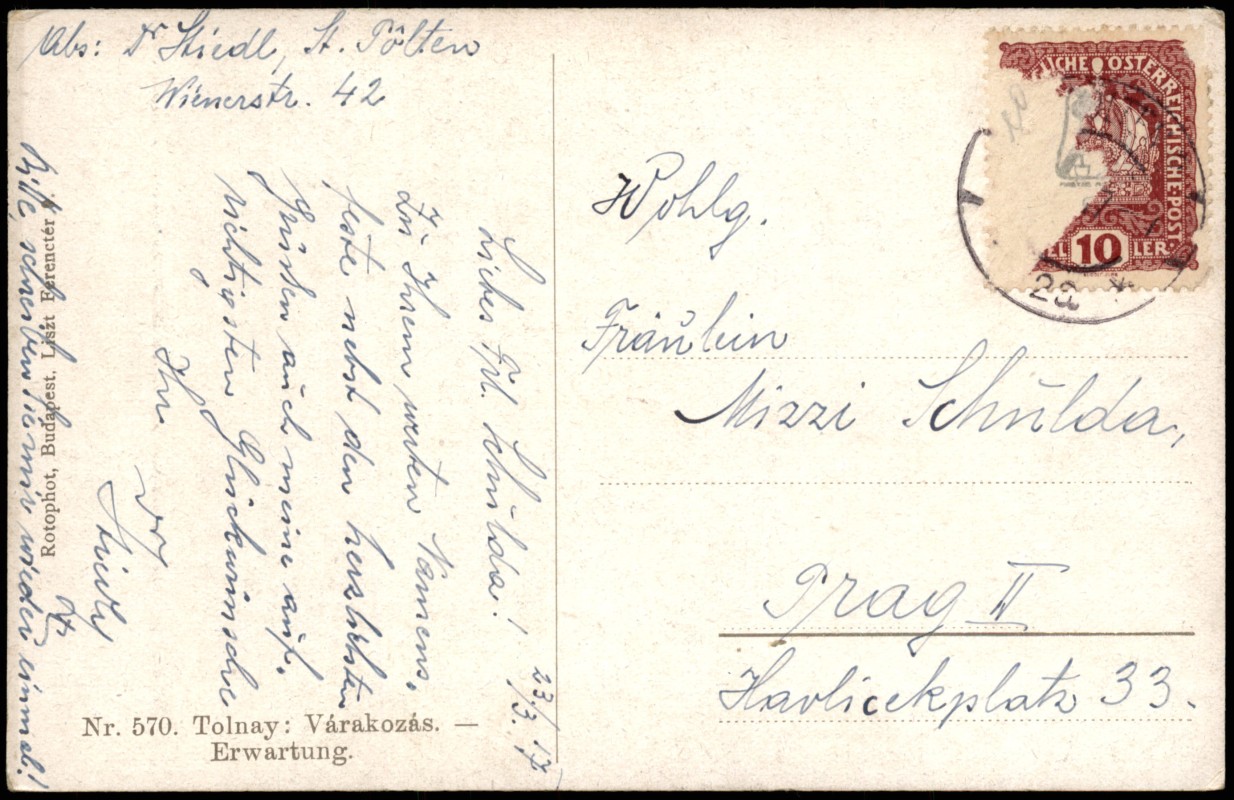 Abs: Dr Stiedl, St. Pölten
Wienerstr. 42
23/3. 17
Liebes Frl. Schulda!
Zu Ihrem werten Namens-
feste nebst den herzlichsten
Grüßen auch meine auf-
richtigsten Glückwünsche
Ihr
Dr Stiedl
Bitte schreiben Sie mir wieder einmal!
Rotophot, Budapest, Liszt Ferenctér
Nr. 570. Tolnay: Várakozás. —
Erwartung.
LICHE ÖSTERREICHISCHE POST
10
LER
2a *
Wohlg.
Fräulein
Mizzi Schulda,
Prag II
Havlicekplatz 33.